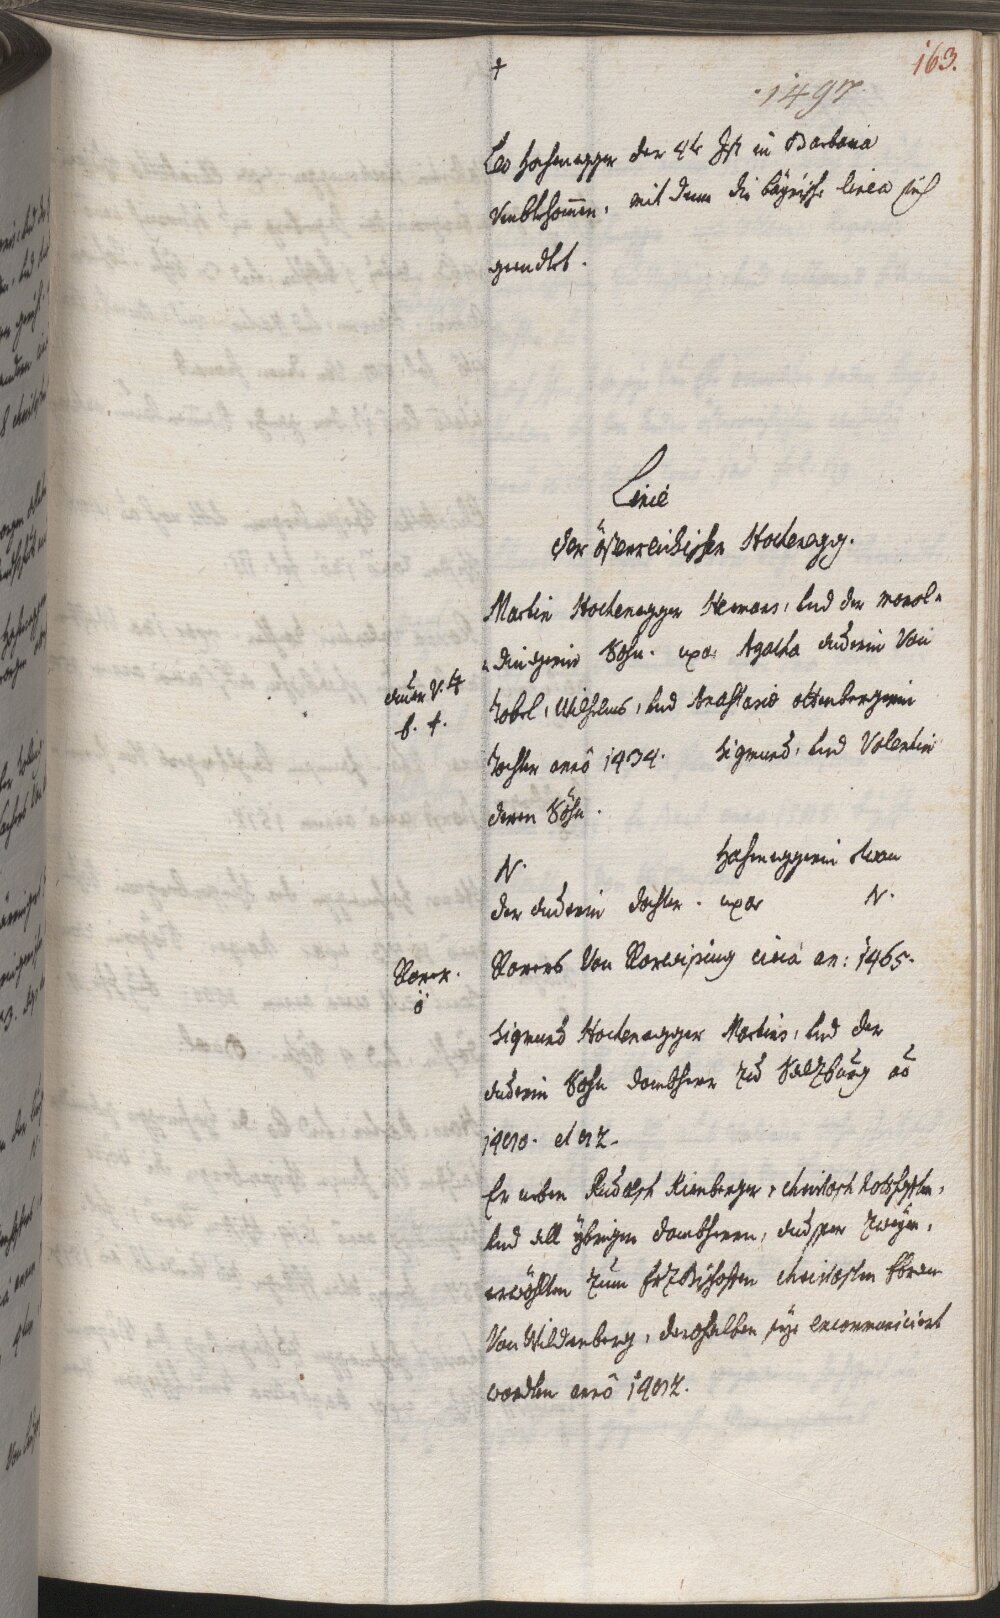 163.
†
1497.
Leo hochenegger der 4te Ist in Barbaria
Vmbkhomen, mit deme die bayrische linea sich
geendtet.
Linie
der österreichischen Hochenegg.
Martin Hochenegger Hemans, und der
Sohn. uxor Agatha Auerin Von
Auer V. 4
f. 4.
Tobel, Wilhelms, und Anastasia Ottenbergerin
tochter anno 1434. Sigmund, und Valentin
deren Söhn.
N. hocheneggerin
der Auerin dochter. uxor N.
Rorer.
ö
Rorers Von circa an: 1465.
Sigmund Hochenegger Martins, und der
Auerin Sohn dombherr zu Salzburg ao
Er neben Rudolph Kienberger, christoph
und all übrigen dombherrn, ausser zweyen,
erwöhlten zum Erzbischoffen christophen Ebran
Von Wildenberg, dershalben sye excommuniciert
wordten anno